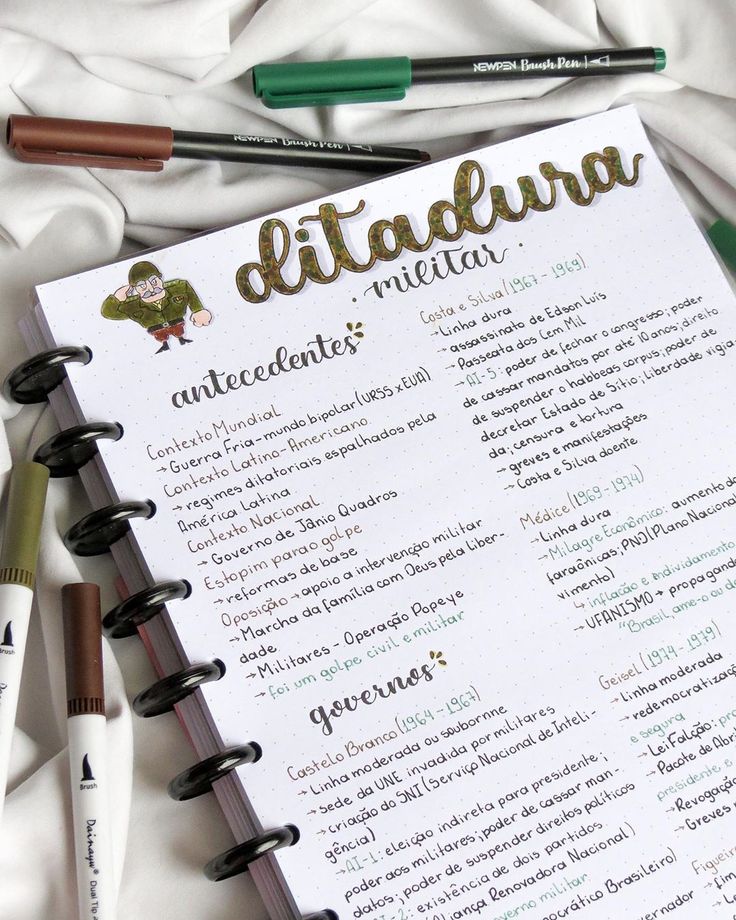 NEWPEN Brush Pen
NEWPEN Brush Pen
ditadura
militar
antecedentes
Contexto Mundial
→ Guerra Fria - mundo bipolar (URSS x EUA)
Contexto Latino-Americano
→ regimes ditatoriais espalhados pela
América Latina
Contexto Nacional
→ Governo de Jânio Quadros
Estopim para o golpe
→ reformas de base
Oposição → apoio a intervenção militar
→ Marcha da Família com Deus pela liber-
dade
→ Militares - Operação Popeye
→ foi um golpe civil e militar
governos
Castelo Branco (1964 - 1967)
→ Linha moderada ou soubornne
→ sede da UNE invadida por militares
→ criação do SNI (Serviço Nacional de Inteli-
gência)
→ AI-1: eleição indireta para presidente;
poder aos militares; poder de cassar man-
datos; poder de suspender direitos políticos
→ AI-2: existência de dois partidos
(Aliança Renovadora Nacional)
governo militar
Democrático Brasileiro)
Costa e Silva (1967 - 1969)
→ Linha dura
→ assassinato de Edson Luís
→ Passeata dos Cem Mil
→ AI-5: poder de fechar o congresso; poder
de cassar mandatos por até 10 anos; direito
de suspender o habbeas corpus; poder de
decretar Estado de Sítio; liberdade vigia
da; censura e tortura
→ greves e manifestações
→ Costa e Silva doente
Médice (1969 - 1974)
→ Linha dura
→ Milagre Econômico: aumento da
faraônicas; PND (Plano Nacional
vimento)
↳ inflação e individamento
→ UFANISMO → propagand
"Brasil, ame-o ou de
Geisel (1974 - 1979)
→ linha moderada
→ redemocratizaçã
e segura
→ Lei Falção: pro
→ Pacote de Abri
presidente e
→ Revogação
→ Greves
Figueire
→ fim
Brush
Brush
Dainayw
Dual Tip